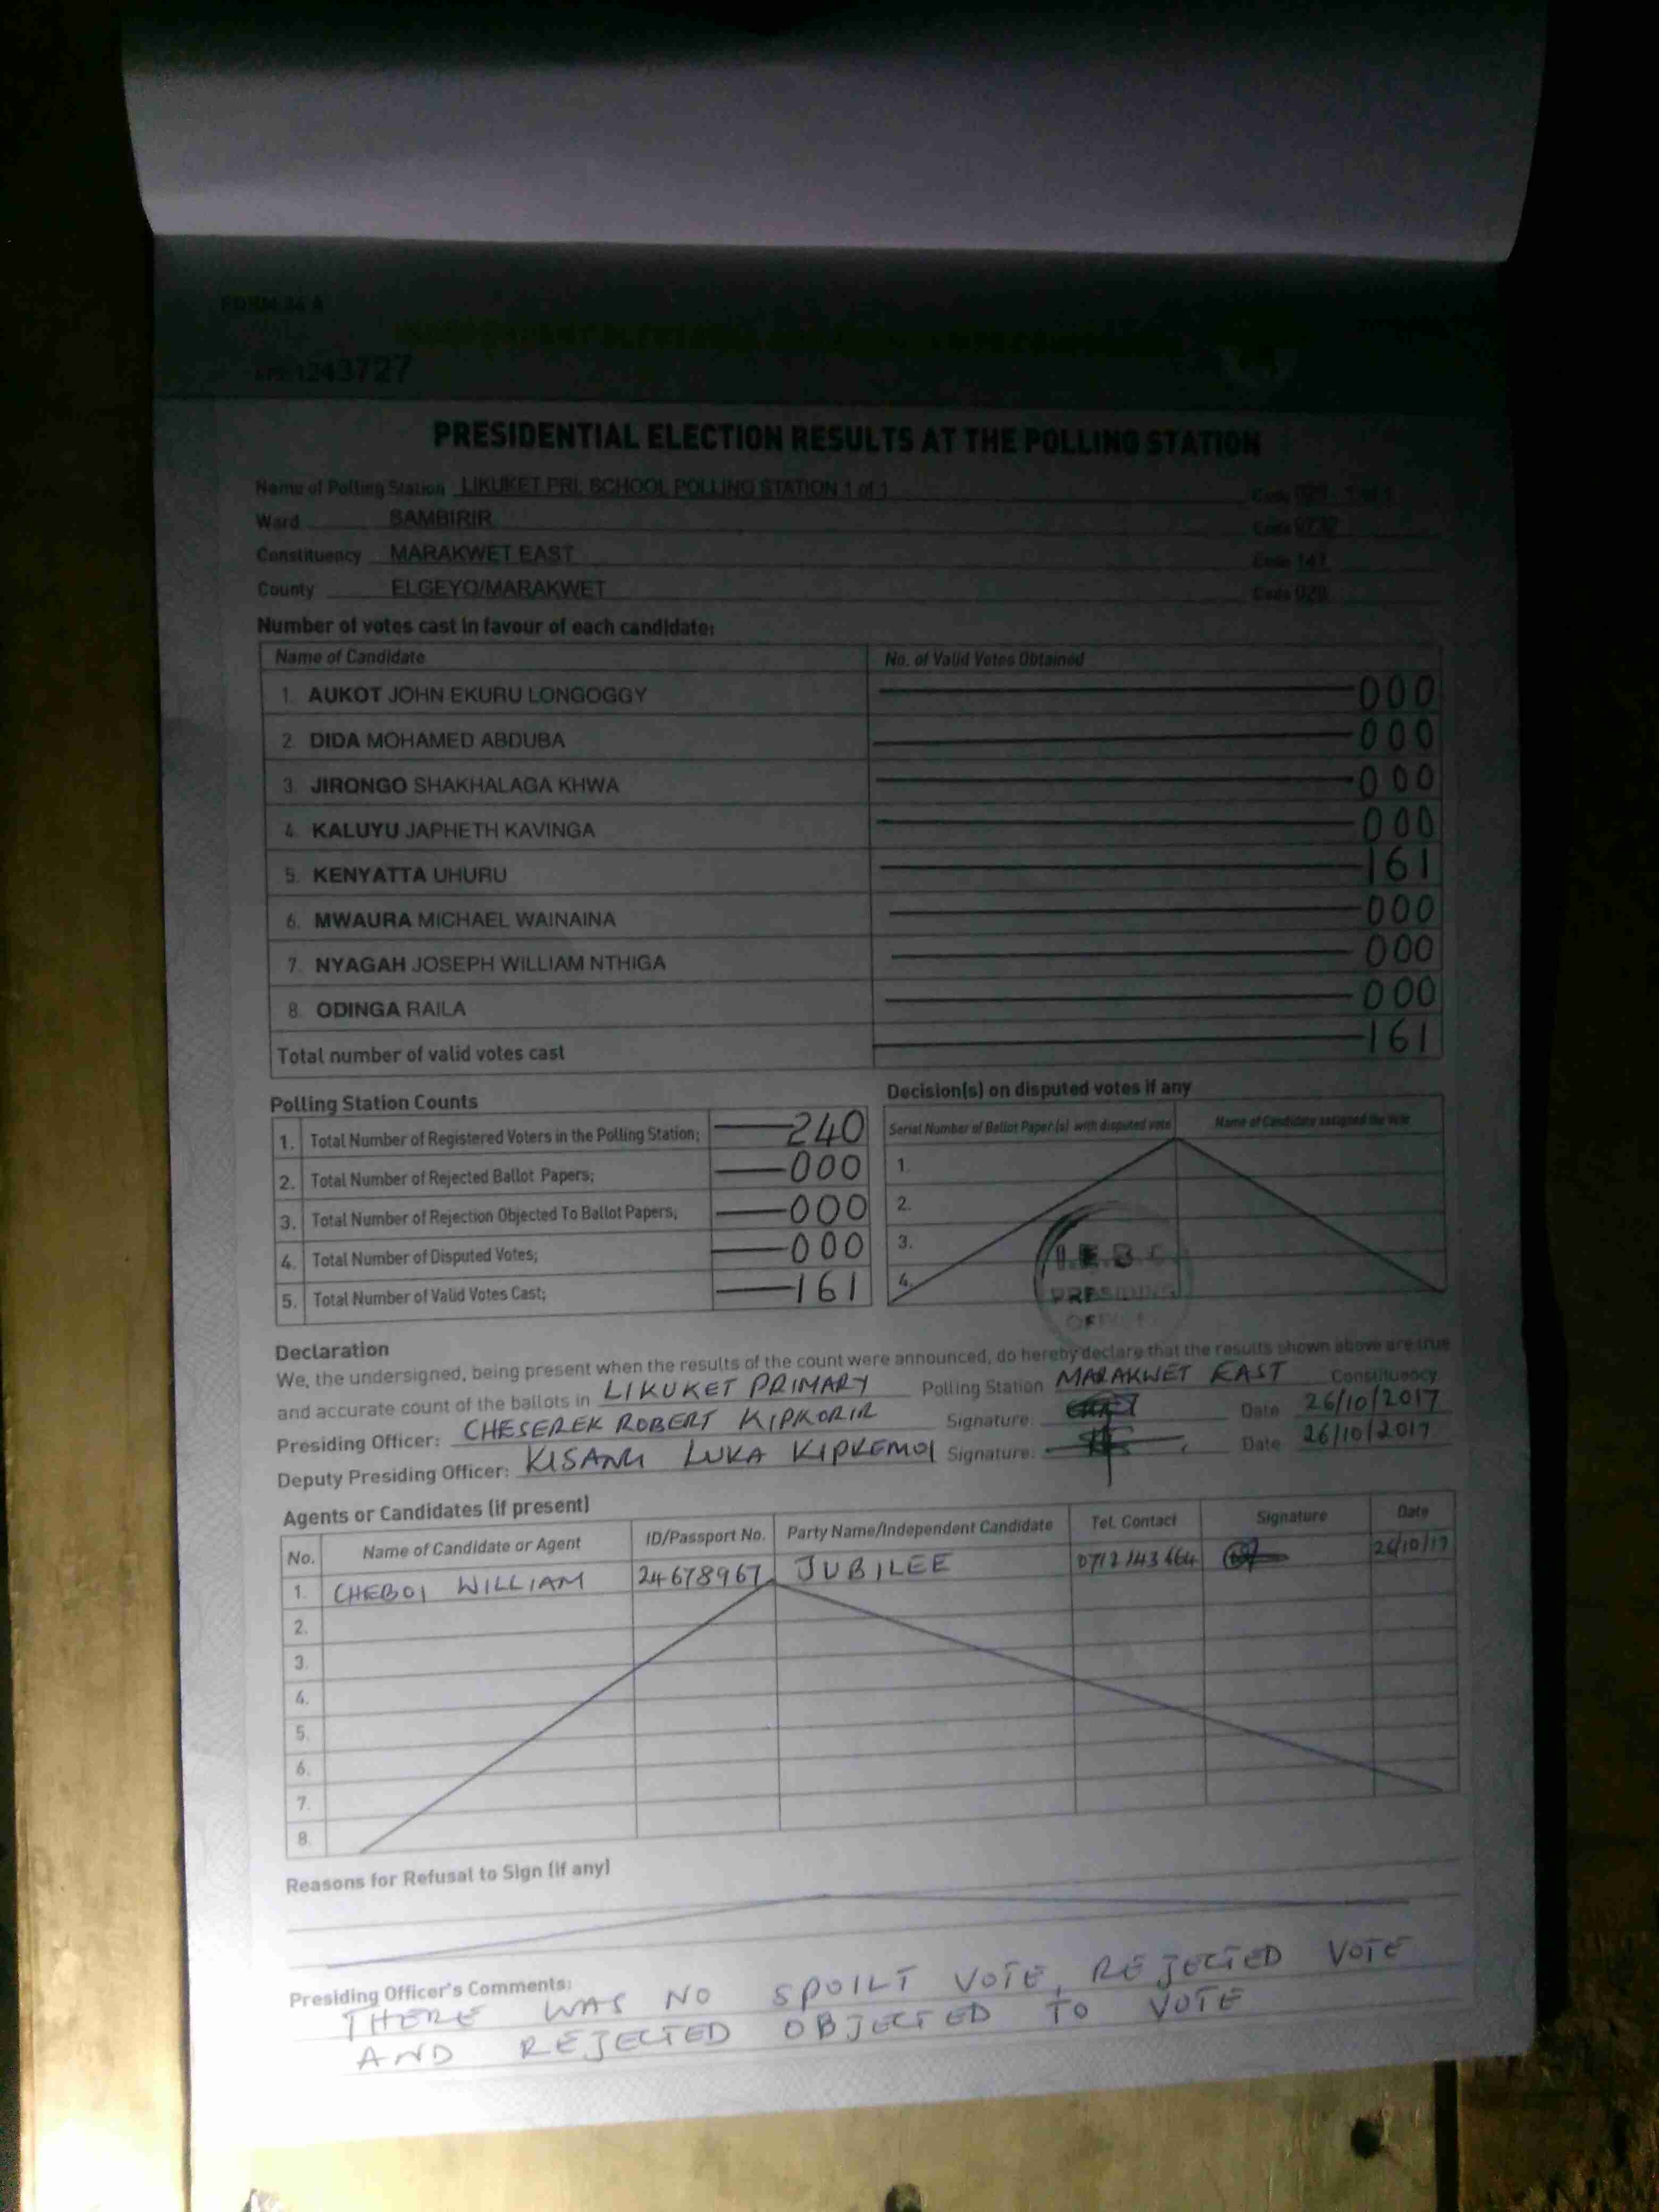 FORM 34 A
1243727
PRESIDENTIAL ELECTION RESULTS AT THE POLLING STATION
Name of Polling Station LIKUKET PRI. SCHOOL POLLING STATION 1 of 1
Ward SAMBIRIR
Constituency MARAKWET EAST
County ELGEYO/MARAKWET
Number of votes cast in favour of each candidate:
Name of Candidate No. of Valid Votes Obtained
1. AUKOT JOHN EKURU LONGOGGY 000
2. DIDA MOHAMED ABDUBA 000
3. JIRONGO SHAKHALAGA KHWA 000
4. KALUYU JAPHETH KAVINGA 000
5. KENYATTA UHURU 161
6. MWAURA MICHAEL WAINAINA 000
7. NYAGAH JOSEPH WILLIAM NTHIGA 000
8. ODINGA RAILA 000
Total number of valid votes cast 161
Polling Station Counts
1. Total Number of Registered Voters in the Polling Station; 240
2. Total Number of Rejected Ballot Papers; 000
3. Total Number of Rejection Objected To Ballot Papers; 000
4. Total Number of Disputed Votes; 000
5. Total Number of Valid Votes Cast; 161
Decision(s) on disputed votes if any
Serial Number of Ballot Paper (s) with disputed vote Name of Candidate assigned the vote
1.
2.
3.
4.
I.E.B.C
PRESIDING
Declaration
We, the undersigned, being present when the results of the count were announced, do hereby declare that the results shown above are true
and accurate count of the ballots in LIKUKET PRIMARY Polling Station MARAKWET EAST Constituency
Presiding Officer: CHESEREK ROBERT KIPKORIR Signature: Date 26/10/2017
Deputy Presiding Officer: KISANG LUKA KIPKEMOI Signature: Date 26/10/2017
Agents or Candidates (if present)
No. Name of Candidate or Agent ID/Passport No. Party Name/Independent Candidate Tel. Contact Signature Date
1. CHEBOI WILLIAM 24678967 JUBILEE 0712143464 26/10/17
2.
3.
4.
5.
6.
7.
8.
Reasons for Refusal to Sign (if any)
Presiding Officer's Comments:
THERE WAS NO SPOILT VOTE, REJECTED VOTE
AND REJECTED OBJECTED TO VOTE